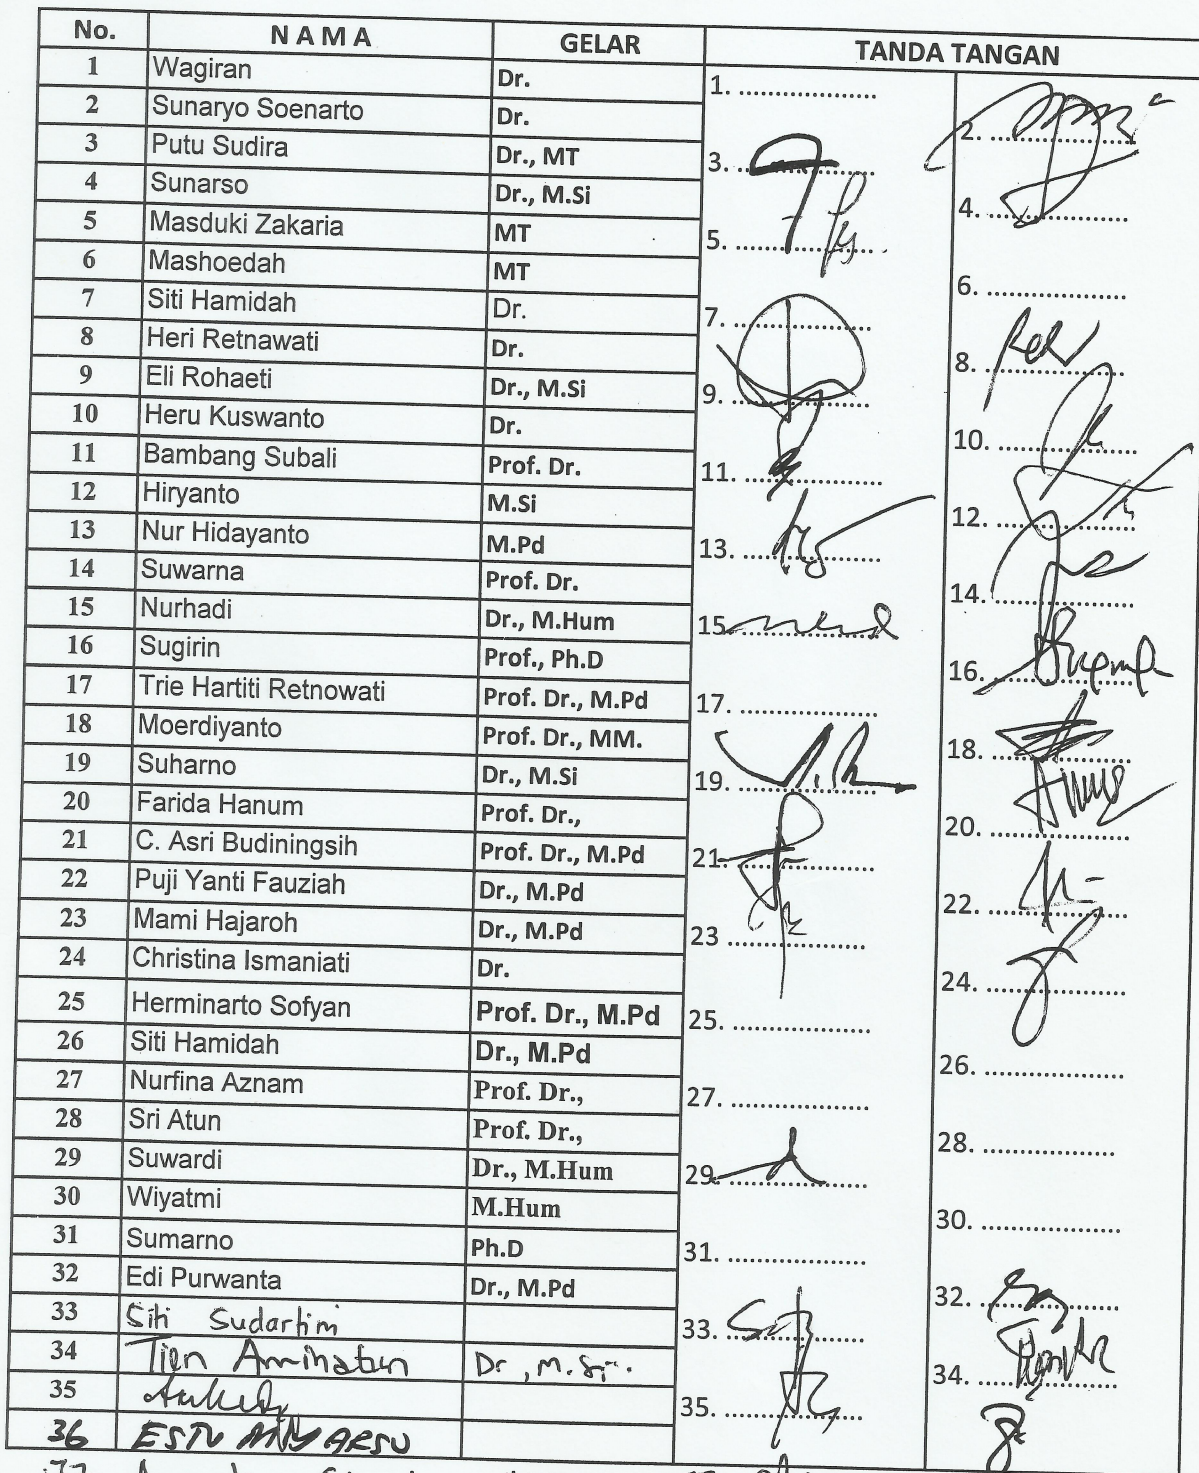 No. N A M A GELAR TANDA TANGAN
1 Wagiran Dr. 1. ....................
2 Sunaryo Soenarto Dr. 2. ....................
3 Putu Sudira Dr., MT 3. ....................
4 Sunarso Dr., M.Si 4. ....................
5 Masduki Zakaria MT 5. ....................
6 Mashoedah MT 6. ....................
7 Siti Hamidah Dr. 7. ....................
8 Heri Retnawati Dr. 8. ....................
9 Eli Rohaeti Dr., M.Si 9. ....................
10 Heru Kuswanto Dr. 10. ....................
11 Bambang Subali Prof. Dr. 11. ....................
12 Hiryanto M.Si 12. ....................
13 Nur Hidayanto M.Pd 13. ....................
14 Suwarna Prof. Dr. 14. ....................
15 Nurhadi Dr., M.Hum 15. ....................
16 Sugirin Prof., Ph.D 16. ....................
17 Trie Hartiti Retnowati Prof. Dr., M.Pd 17. ....................
18 Moerdiyanto Prof. Dr., MM. 18. ....................
19 Suharno Dr., M.Si 19. ....................
20 Farida Hanum Prof. Dr., 20. ....................
21 C. Asri Budiningsih Prof. Dr., M.Pd 21. ....................
22 Puji Yanti Fauziah Dr., M.Pd 22. ....................
23 Mami Hajaroh Dr., M.Pd 23 ....................
24 Christina Ismaniati Dr. 24. ....................
25 Herminarto Sofyan Prof. Dr., M.Pd 25. ....................
26 Siti Hamidah Dr., M.Pd 26. ....................
27 Nurfina Aznam Prof. Dr., 27. ....................
28 Sri Atun Prof. Dr., 28. ....................
29 Suwardi Dr., M.Hum 29. ....................
30 Wiyatmi M.Hum 30. ....................
31 Sumarno Ph.D 31. ....................
32 Edi Purwanta Dr., M.Pd 32. ....................
33 Siti Sudartini 33. ....................
34 Tien Aminatun Dr, M.Si. 34. ....................
35 35. ....................
36 ESTU